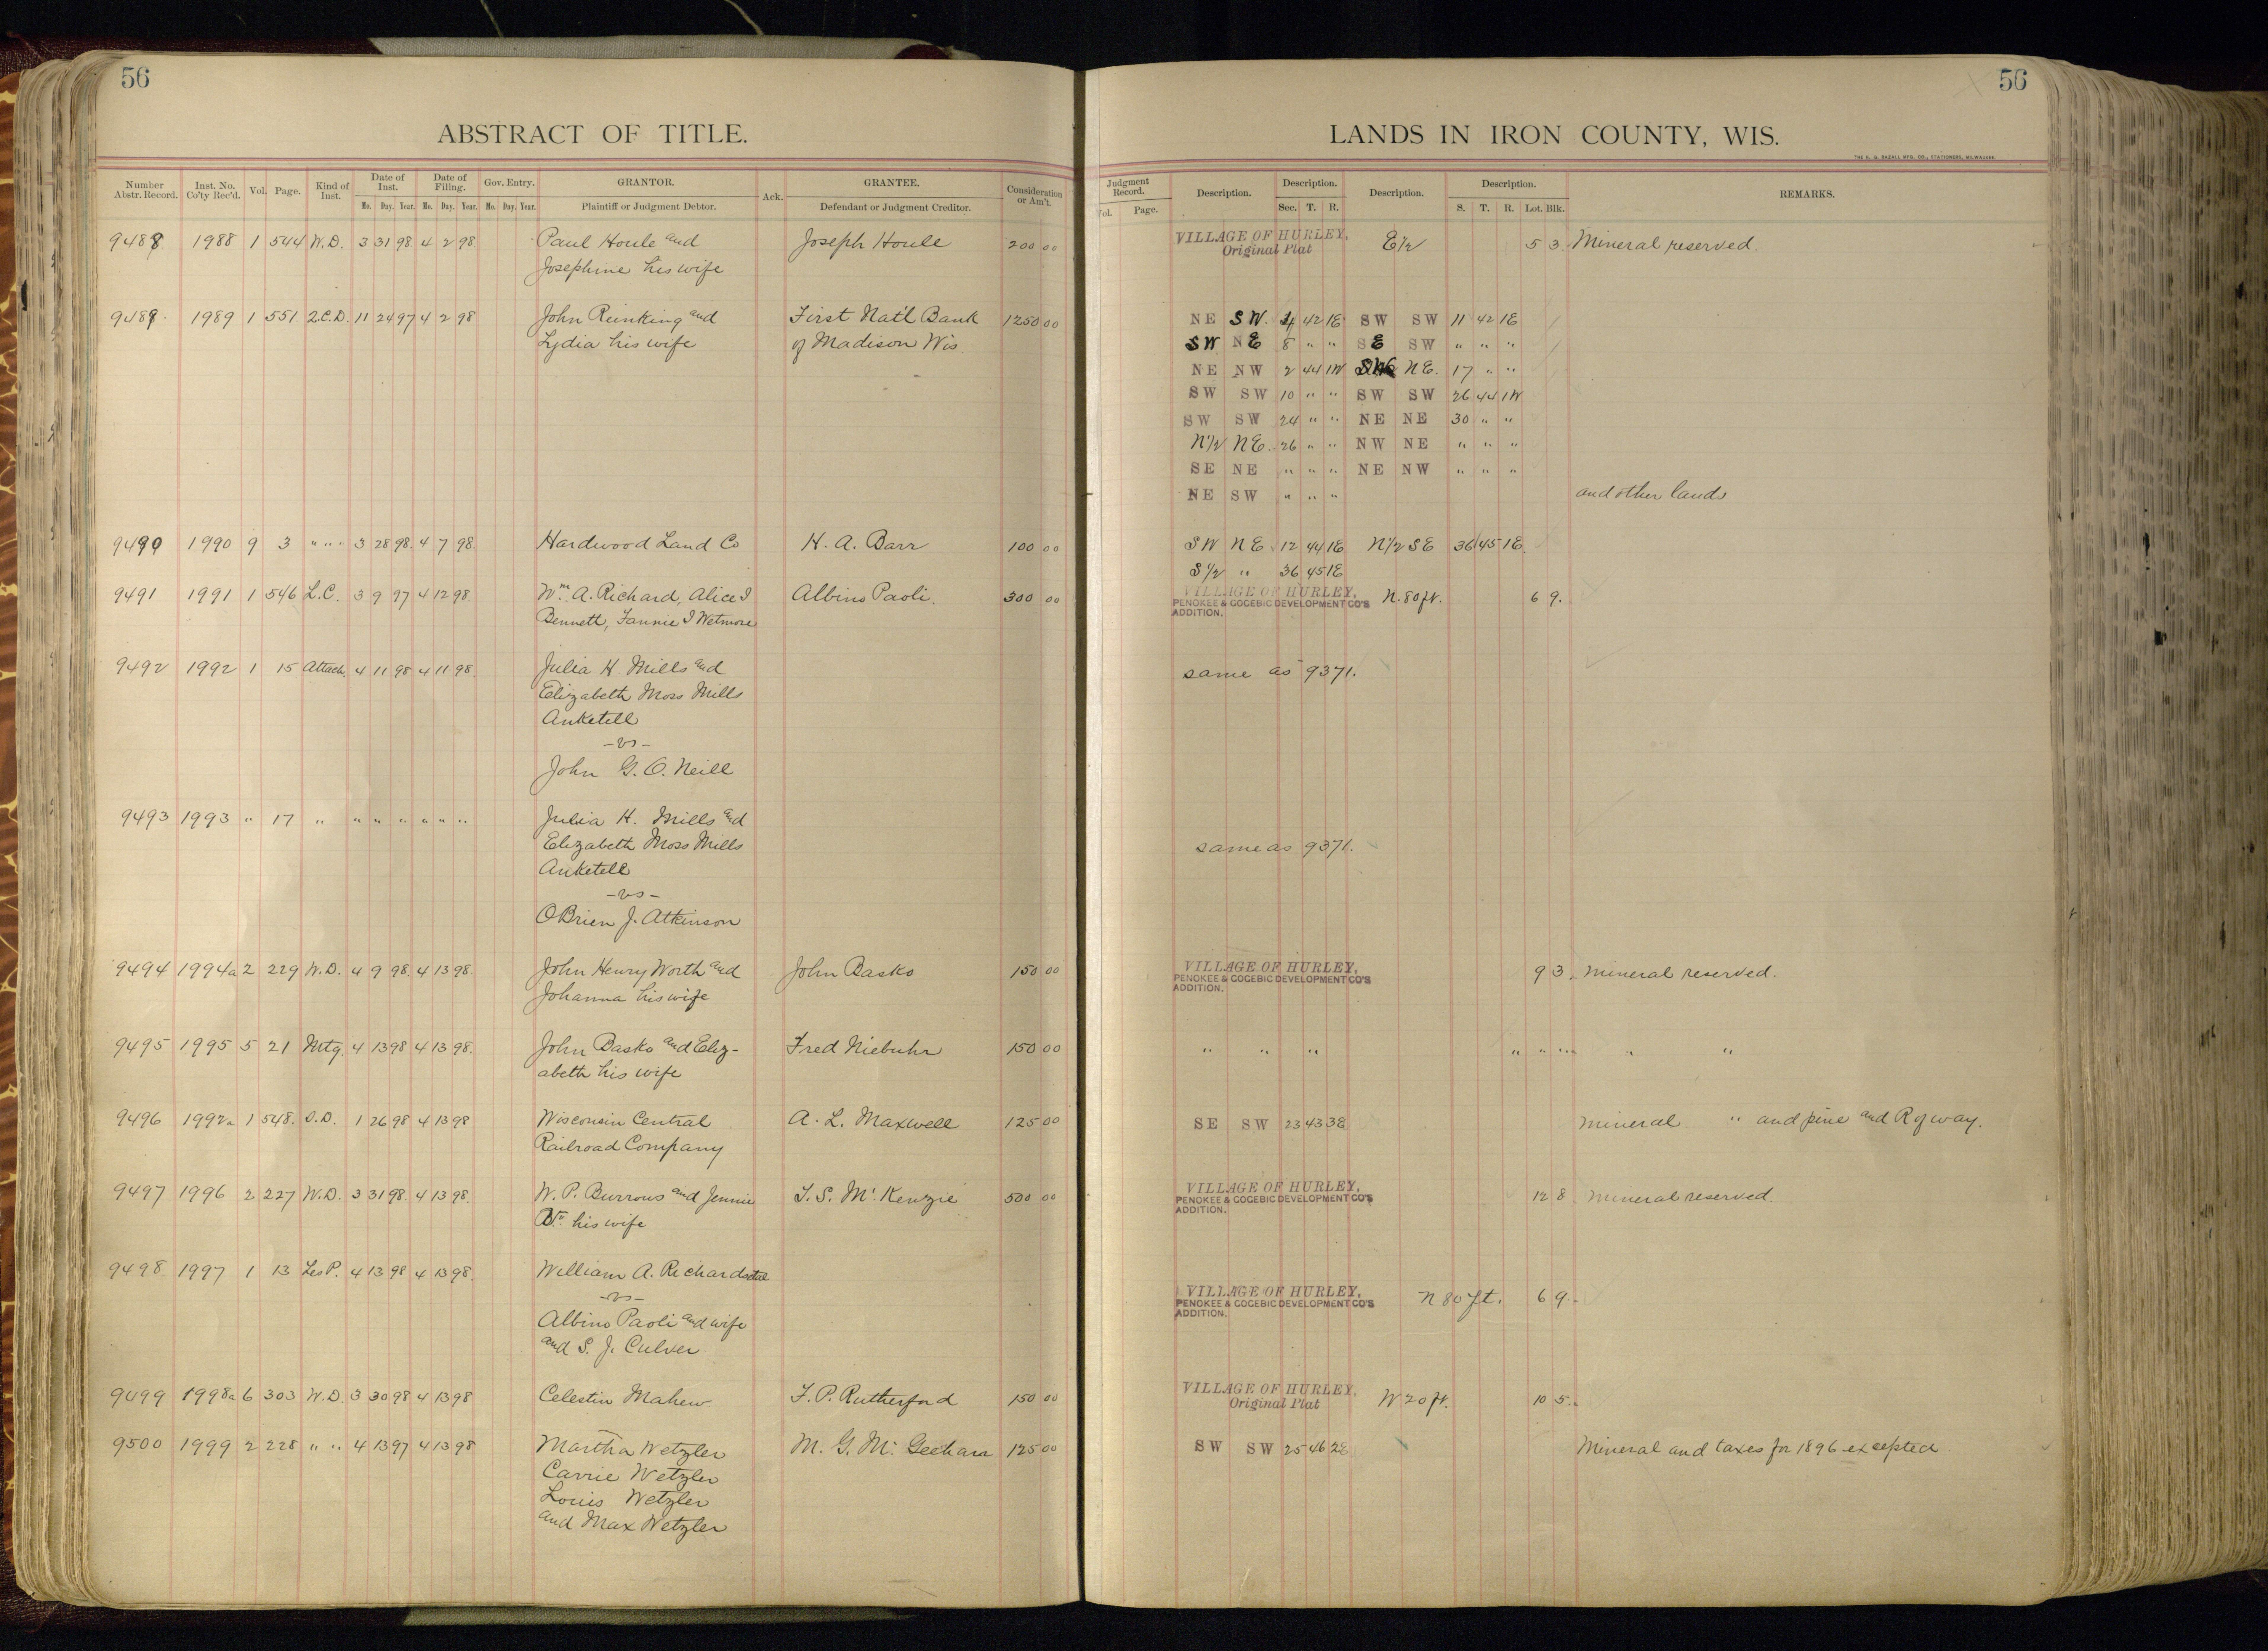 56
56
ABSTRACT OF TITLE.
LANDS IN IRON COUNTY, WIS.
THE H. G. RAZALL MFG. CO., STATIONERS, MILWAUKEE.
Number Abstr. Record. Inst. No. Co'ty Rec'd. Vol. Page. Kind of Inst. Date of Inst. Mo. Day. Year. Date of Filing. Mo. Day. Year. Gov. Entry. Mo. Day. Year. GRANTOR. Plaintiff or Judgment Debtor. Ack. GRANTEE. Defendant or Judgment Creditor. Consideration or Am't.
Judgment Record. Vol. Page. Description. Description. Sec. T. R. Description. Description. S. T. R. Lot. Blk. REMARKS.
9488 1988 1 544 W.D. 3 31 98 4 2 98 Paul Houle and Joseph Houle 200 00 VILLAGE OF HURLEY, E 1/2 5 3. Mineral reserved.
Josephine his wife Original Plat
9489 1989 1 551 Q.C.D. 11 24 97 4 2 98 John Reinking and First Nat'l Bank 1250 00 NE SW. 4 42 1E SW SW 11 42 1E
Lydia his wife of Madison Wis. SW NE 8 " " SE SW " " "
NE NW 2 44 1W NE. 17 " "
SW SW 10 " " SW SW 26 44 1W
SW SW 24 " " NE NE 30 " "
N 1/2 NE. 26 " " NW NE " " "
SE NE " " " NE NW " " "
NE SW " " " and other lands
9490 1990 9 3 " " " 3 28 98. 4 7 98. Hardwood Land Co H. A. Barr 100 00 SW NE 12 44 1E N 1/2 SE 36 45 1E.
S 1/2 " 36 45 1E
9491 1991 1 546 L.C. 3 9 97 4 12 98. Wm. A. Richard, Alice I Albino Paoli. 300 00 VILLAGE OF HURLEY, N. 80 ft. 6 9.
Bennett, Fannie I Wetmore PENOKEE & GOGEBIC DEVELOPMENT CO'S ADDITION.
9492 1992 1 15 Attach. 4 11 98 4 11 98. Julia H. Mills and same as 9371.
Elizabeth Moss Mills
Anketell
-vs-
John G. O. Neill
9493 1993 " 17 " " " " " " " Julia H. Mills and
Elizabeth Moss Mills same as 9371.
Anketell
-vs-
O Brien J. Atkinson
9494 1994a 2 229 W.D. 4 9 98. 4 13 98. John Henry Worth and John Basko 150 00 VILLAGE OF HURLEY, 9 3. Mineral reserved.
Johanna his wife PENOKEE & GOGEBIC DEVELOPMENT CO'S ADDITION.
9495 1995 5 21 Mtg. 4 13 98 4 13 98. John Basko and Eliz- Fred Niebuhr 150 00 " " " " " " " "
abeth his wife
9496 1 548. 1 26 98 4 13 98 Wisconsin Central A. L. Maxwell 125 00 SE SW 23 43 3E Mineral " and pine and R of way.
Railroad Company
9497 1996 2 227 W.D. 3 31 98. 4 13 98. W. P. Burrows and Jennie 500 00 VILLAGE OF HURLEY, 12 8. Mineral reserved.
his wife PENOKEE & GOGEBIC DEVELOPMENT CO'S ADDITION.
9498 1997 1 13 Les P. 4 13 98 4 13 98. William A. Richards etal
-vs- VILLAGE OF HURLEY, N 80 ft. 6 9.
Albino Paoli and wife PENOKEE & GOGEBIC DEVELOPMENT CO'S ADDITION.
and S. J. Culver
9499 1998a 6 303 W.D. 3 30 98 4 13 98 Celestin Mahew F. P. Rutherford 150 00 VILLAGE OF HURLEY, W 20 ft. 10 5.
Original Plat
9500 1999 2 228 " " 4 13 97 4 13 98 Martha Wetzler M. G. Mc. Geehan 125 00 SW SW 25 46 2E Mineral and taxes for 1896 excepted
Carrie Wetzler
Louis Wetzler
and Max Wetzler